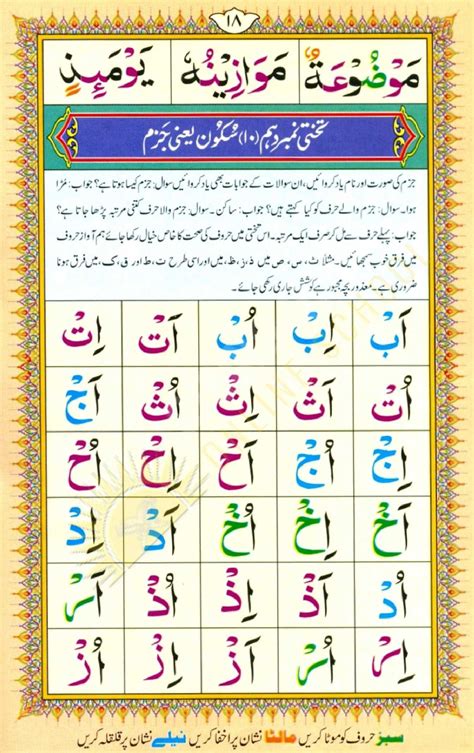 ۱۸
مَوْضُوْعَةٌ مَوَازِيْنُهٗ يَوْمَئِذٍ
تختی نمبر دہم (۱۰) سُکُون یعنی جزم
جزم کی صورت اور نام یاد کروائیں، ان سوالات کے جوابات بھی یاد کروائیں سوال: جزم کیسا ہوتا ہے؟ جواب: مُڑا
ہوا۔ سوال: جزم والے حرف کو کیا کہتے ہیں؟ جواب: ساکن۔ سوال: جزم والا حرف کتنی مرتبہ پڑھا جاتا ہے؟
جواب: پہلے حرف سے مل کر صرف ایک مرتبہ۔ اس تختی میں حروف کی صحت کا خاص خیال رکھا جائے ہم آواز حروف
میں فرق خوب سمجھائیں۔ مثلاً ث، س، ص میں ذ، ز، ظ، میں اور اسی طرح ت، ط اور ق، ک، میں فرق ہونا
ضروری ہے۔ معذور بچہ مجبور ہے کوشش جاری رکھی جائے۔
اَبْ اِبْ اُبْ اَتْ اِتْ
اُتْ اَثْ اِثْ اُثْ اَجْ
اِجْ اُجْ اَحْ اِحْ اُحْ
اَخْ اِخْ اُخْ اَدْ اِدْ
اُدْ اَذْ اِذْ اُذْ اَرْ
اِرْ اُرْ اَزْ اِزْ اُزْ
سبز حروف کو موٹا کریں مالٹا نشان پر اخفا کریں نیلے نشان پر قلقلہ کریں